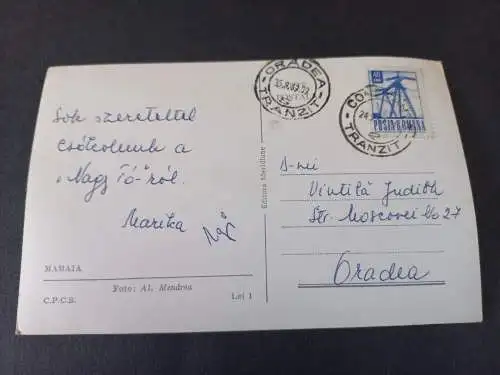 Sok szeretettel
csókolunk a
"Nagy Tó"-ról.
Marika
MAMAIA
Foto: Al. Mendrea
C.P.C.S.
Lei 1
Editura Meridiane
ORADEA
TRANZIT
TRANZIT
POSTA ROMANA
D-nei
Vintilă Judith
Str. Moscovei No 27
Oradea